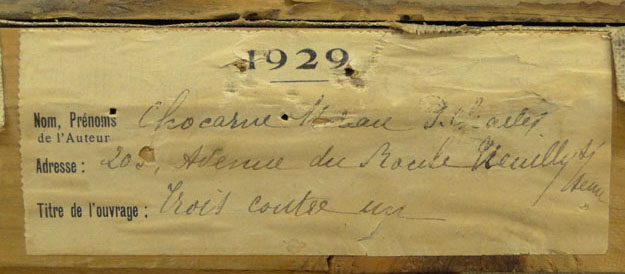 1929
Nom, Prénoms Chocarne Moreau P. Charles
de l'Auteur
Adresse : 205, Avenue du Roule Neuilly s/
Seine
Titre de l'ouvrage : Trois contre un